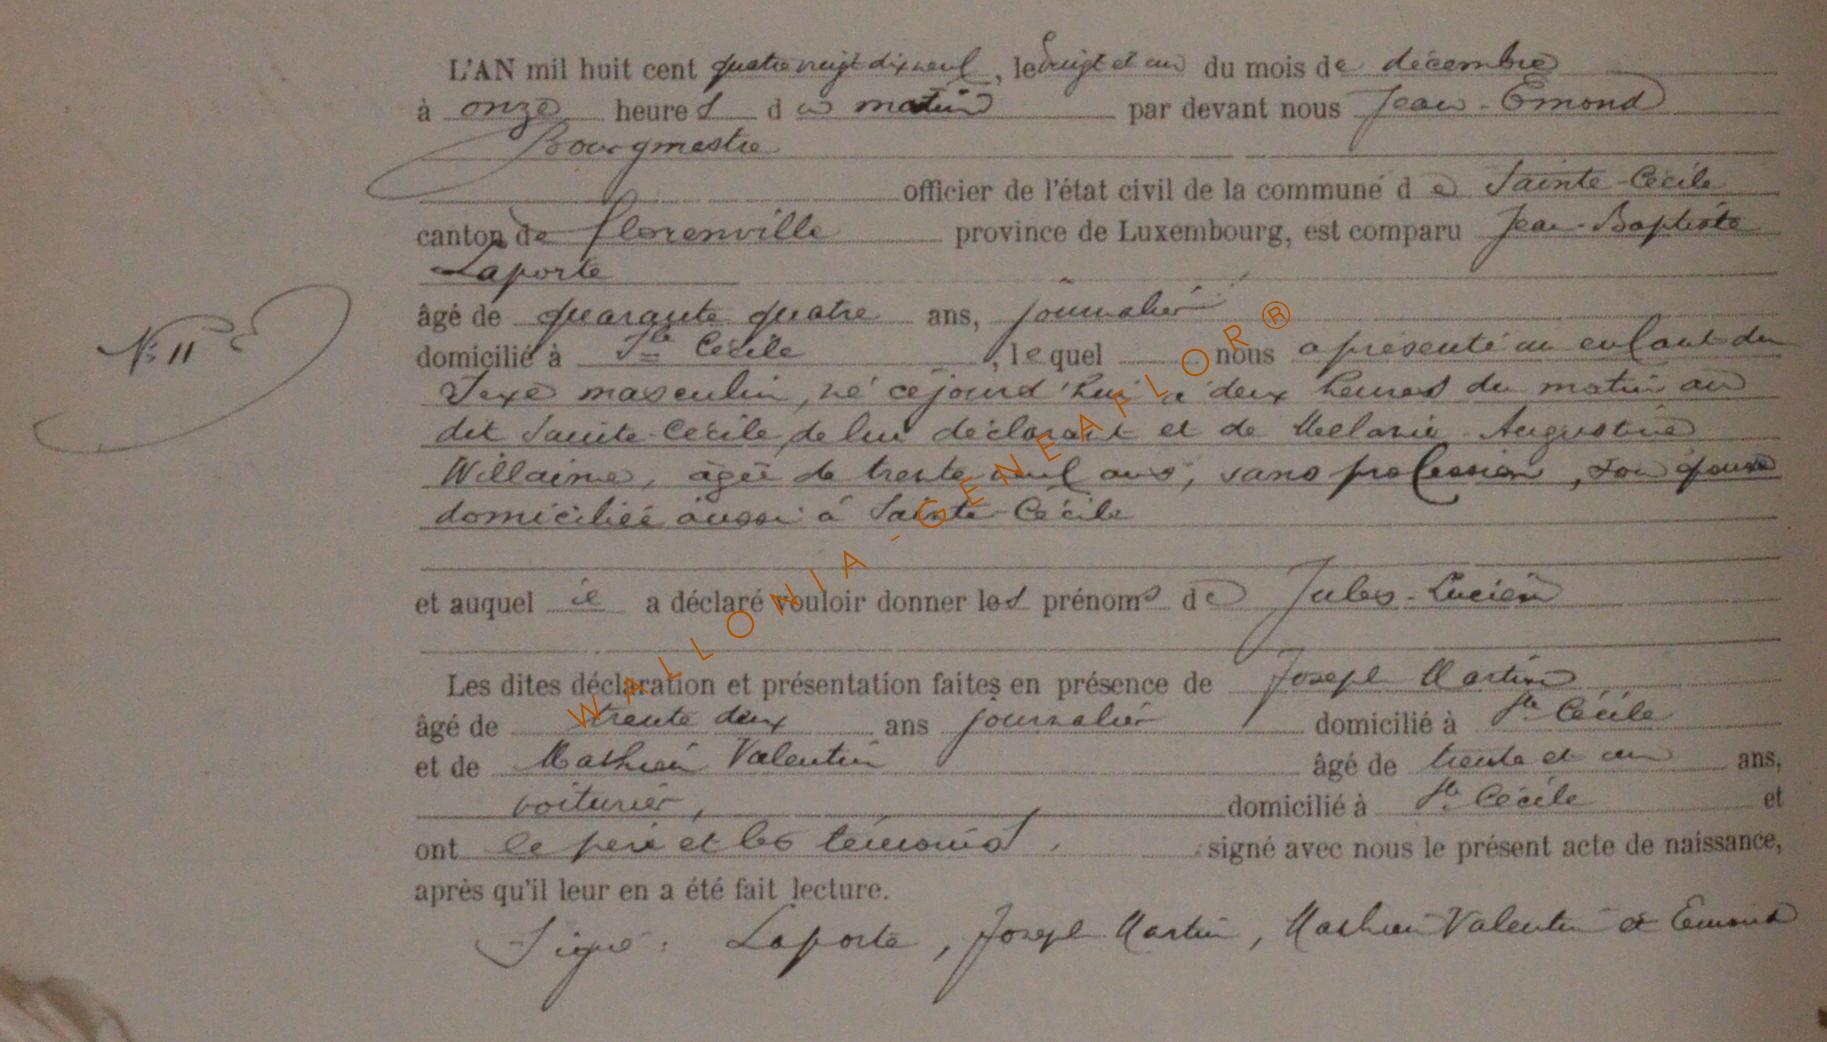 L'AN mil huit cent quatre vingt dix neuf, le vingt et un du mois de décembre
à onze heures du matin par devant nous Jean-Emond
Bourgmestre
officier de l'état civil de la commune de Sainte-Cécile
canton de Florenville province de Luxembourg, est comparu Jean-Baptiste
Laporte
âgé de quarante quatre ans, journalier
N° 11
domicilié à Ste Cécile, lequel nous a présenté un enfant du
Sexe masculin, né cejourd'hui à deux heures du matin au
dit Sainte-Cécile, de lui déclarant et de Mélanie-Augustine
Willaime, âgée de trente neuf ans, sans profession, son épouse
domiciliée aussi à Sainte-Cécile
et auquel il a déclaré vouloir donner les prénoms de Jules-Lucien
Les dites déclaration et présentation faites en présence de Joseph Martin
âgé de trente deux ans journalier domicilié à Ste Cécile
et de Mathieu Valentin âgé de trente et un ans,
voiturier, domicilié à Ste Cécile et
ont le père et les témoins signé avec nous le présent acte de naissance,
après qu'il leur en a été fait lecture.
Signé : Laporte, Joseph Martin, Mathieu Valentin et Emond
WALLONIA-GENEAFLOR®